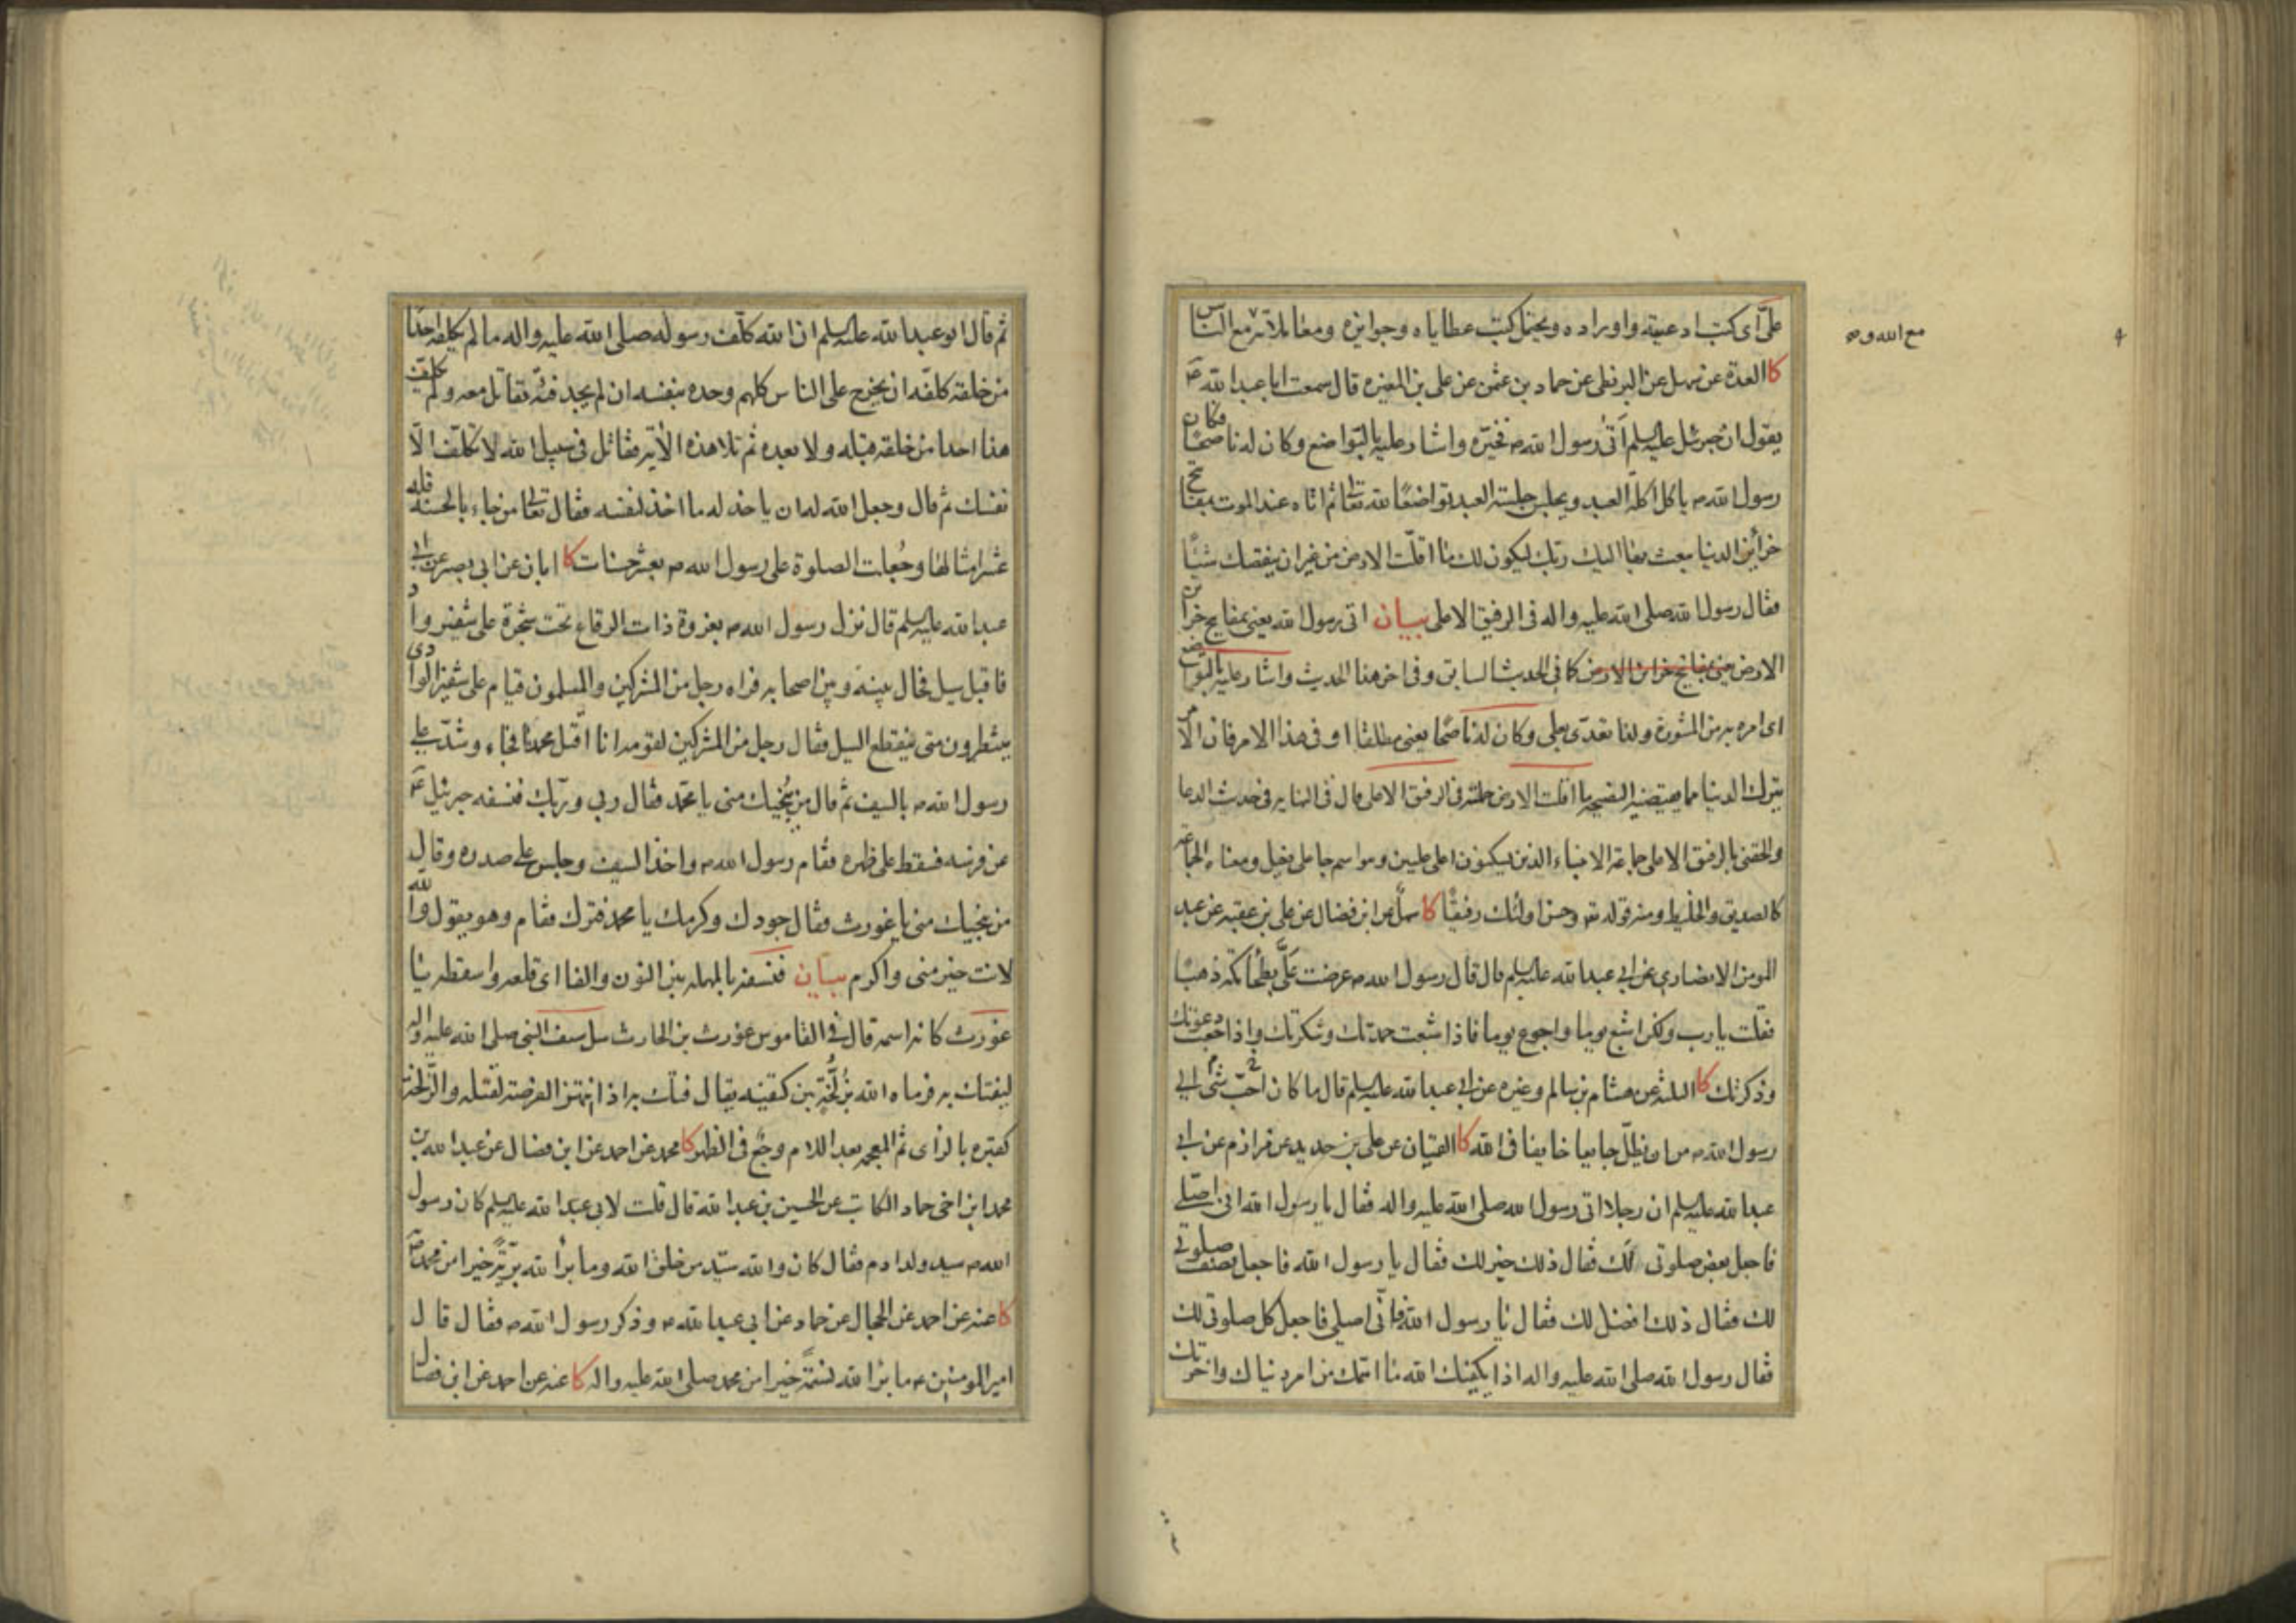 علىّ اى كتب ادعيته واوراده ويحتمل كتب عطاياه وجوايزه ومعاملاته مع الناس
مع الله و
كا العدة عن سهل عن البزنطى عن حماد بن عثمن عن على بن المغيره قال سمعت ابا عبد الله ع
يقول ان جبرئيل عليه السلم اتى رسول الله ص فخيّره واشار عليه بالتواضع وكان له ناصحا فكان
رسول الله ص ياكل اكلة العبد ويجلس جلسة العبد تواضعًا لله تعالى ثم اتاه عند الموت بمفاتيح
خزائن الدنيا بعث بها اليك ربك ليكون لك ما اقلّت الارض من غير ان ينقصك شيئًا
فقال رسول الله صلى الله عليه واله فى الرفيق الاعلى بيان اتى رسول الله يعنى بمفاتيح خزائن
الارض يعنى بمفاتيح خزائن الارض كما فى الحديث السابق وفى اخر هذا الحديث واشار عليه بالتواضع
اى امره به من المشورة ولذا تعدّى بعلى وكان له ناصحًا يعنى مطلقا او فى هذا الامر فان الامر
بترك الدنيا مما يقتضيه النصيحة ما اقلت الارض حملته فى الرفيق الاعلى قال فى النهايه فى حديث الدعا
والحقنى بالرفيق الاعلى جماعة الانبياء الذين يسكنون اعلى عليين وهو اسم جاء على فعيل ومعناه الجماعة
كالصديق والخليط ومنه قوله تعه وحسن اولئك رفيقًا كا سهل عن ابن فضال عن على بن عقبه عن عبد
المومن الانصارى عن ابى عبد الله عليه السلم قال قال رسول الله ص عرضت علىّ بطحا مكة ذهبًا
فقلت يا رب ولكن اشبع يوما واجوع يوما فاذا شبعت حمدتك وشكرتك واذا جعت دعوتك
وذكرتك كا الثلثة عن هشام بن سالم وغيره عن ابى عبد الله عليه السلم قال ما كان شئ احبّ الى
رسول الله ص من ان يظلّ جايعا خايفا فى الله كا القتيان عن على بن حديد عن مرازم عن ابى
عبد الله عليه السلم ان رجلا اتى رسول الله صلى الله عليه واله فقال يا رسول الله انى اصلى
فاجعل بعض صلوتى لك فقال ذلك خير لك فقال يا رسول الله فاجعل نصف صلوتى
لك فقال ذلك افضل لك فقال يا رسول الله فانّى اصلى فاجعل كل صلوتى لك
فقال رسول الله صلى الله عليه واله اذا يكفيك الله ما اهمّك من امر دنياك واخرتك
ثم قال ابو عبد الله عليه السلم ان الله كلّف رسوله صلى الله عليه واله ما لم يكلفه احدًا
من خلقه كلفّه ان يخرج على الناس كلهم وحده بنفسه ان لم يجد فئة تقاتل معه ولم يكلف
هذا احدا من خلقه قبله ولا بعده ثم تلا هذه الآية فقاتل فى سبيل الله لا تكلّف الّا
نفسك ثم قال وجعل الله له ان ياخذ له ما اخذ لنفسه فقال تعالى من جاء بالحسنة فله
عشر امثالها وجُعلت الصلوة على رسول الله ص بعشر حسنات كا ابان عن ابى بصير عن ابى
عبد الله عليه السلم قال نزل رسول الله ص بغزوة ذات الرقاع تحت شجرة على شفير واد
فاقبل سيل فحال بينه وبين اصحابه فراه رجل من المشركين والمسلمون قيام على شفير الوادى
ينتظرون متى ينقطع السيل فقال رجل من المشركين لقومه انا اقتل محمدًا فجاء وشدّ على
رسول الله ص بالسيف ثم قال من يُنجيك منى يا محمّد فقال ربى وربّك فنسفه جبرئيل ع
عن فرسه فسقط على ظهره فقام رسول الله ص واخذ السيف وجلس على صدره وقال
من ينجيك منى يا غورث فقال جودك وكرمك يا محمد فتركه فقام وهو يقول والله
لانت خير منى واكرم بيان فنسفه بالمهمله بين النون والفا اى قلعه واسقطه يا
غورث كانه اسمه قال فى القاموس غورث بن الحارث سلّ سيف النبى صلى الله عليه واله
ليفتك به فرماه الله بزُلَّخة بين كتفيه يقال فتك به اذا انتهز الفرصة لقتله والزّلخة
كقبّره بالزاى ثم المعجمه بعد اللام وجع فى الظهر كا محمد عن احمد عن ابن فضال عن عبد الله بن
محمد ابن اخى حماد الكاتب عن الحسين بن عبد الله قال قلت لابى عبد الله عليه السلم كان رسول
الله ص سيد ولد ادم فقال كان والله سيّد من خلق الله وما برأ الله بريّةً خيرا من محمد ص
كا عنه عن احمد عن الحجال عن حماد عن ابى عبد الله ع وذكر رسول الله ص فقال قال
امير المومنين ع ما برا الله نسمةً خيرا من محمد صلى الله عليه واله كا عنه عن احمد عن ابن فضال